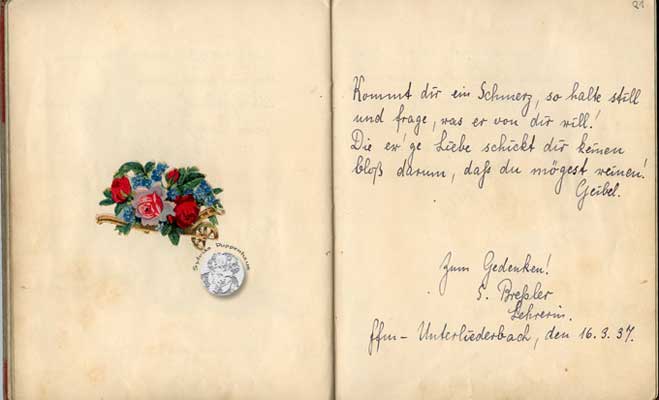 21
Kommt dir ein Schmerz, so halte still
und frage, was er von dir will!
Die ew'ge Liebe schickt dir keinen
bloß darum, daß du mögest weinen!
Geibel.
Sylvias Puppenheim
Zum Gedenken!
S. Breßler
Lehrerin.
Ffm- Unterliederbach, den 16.3.37.